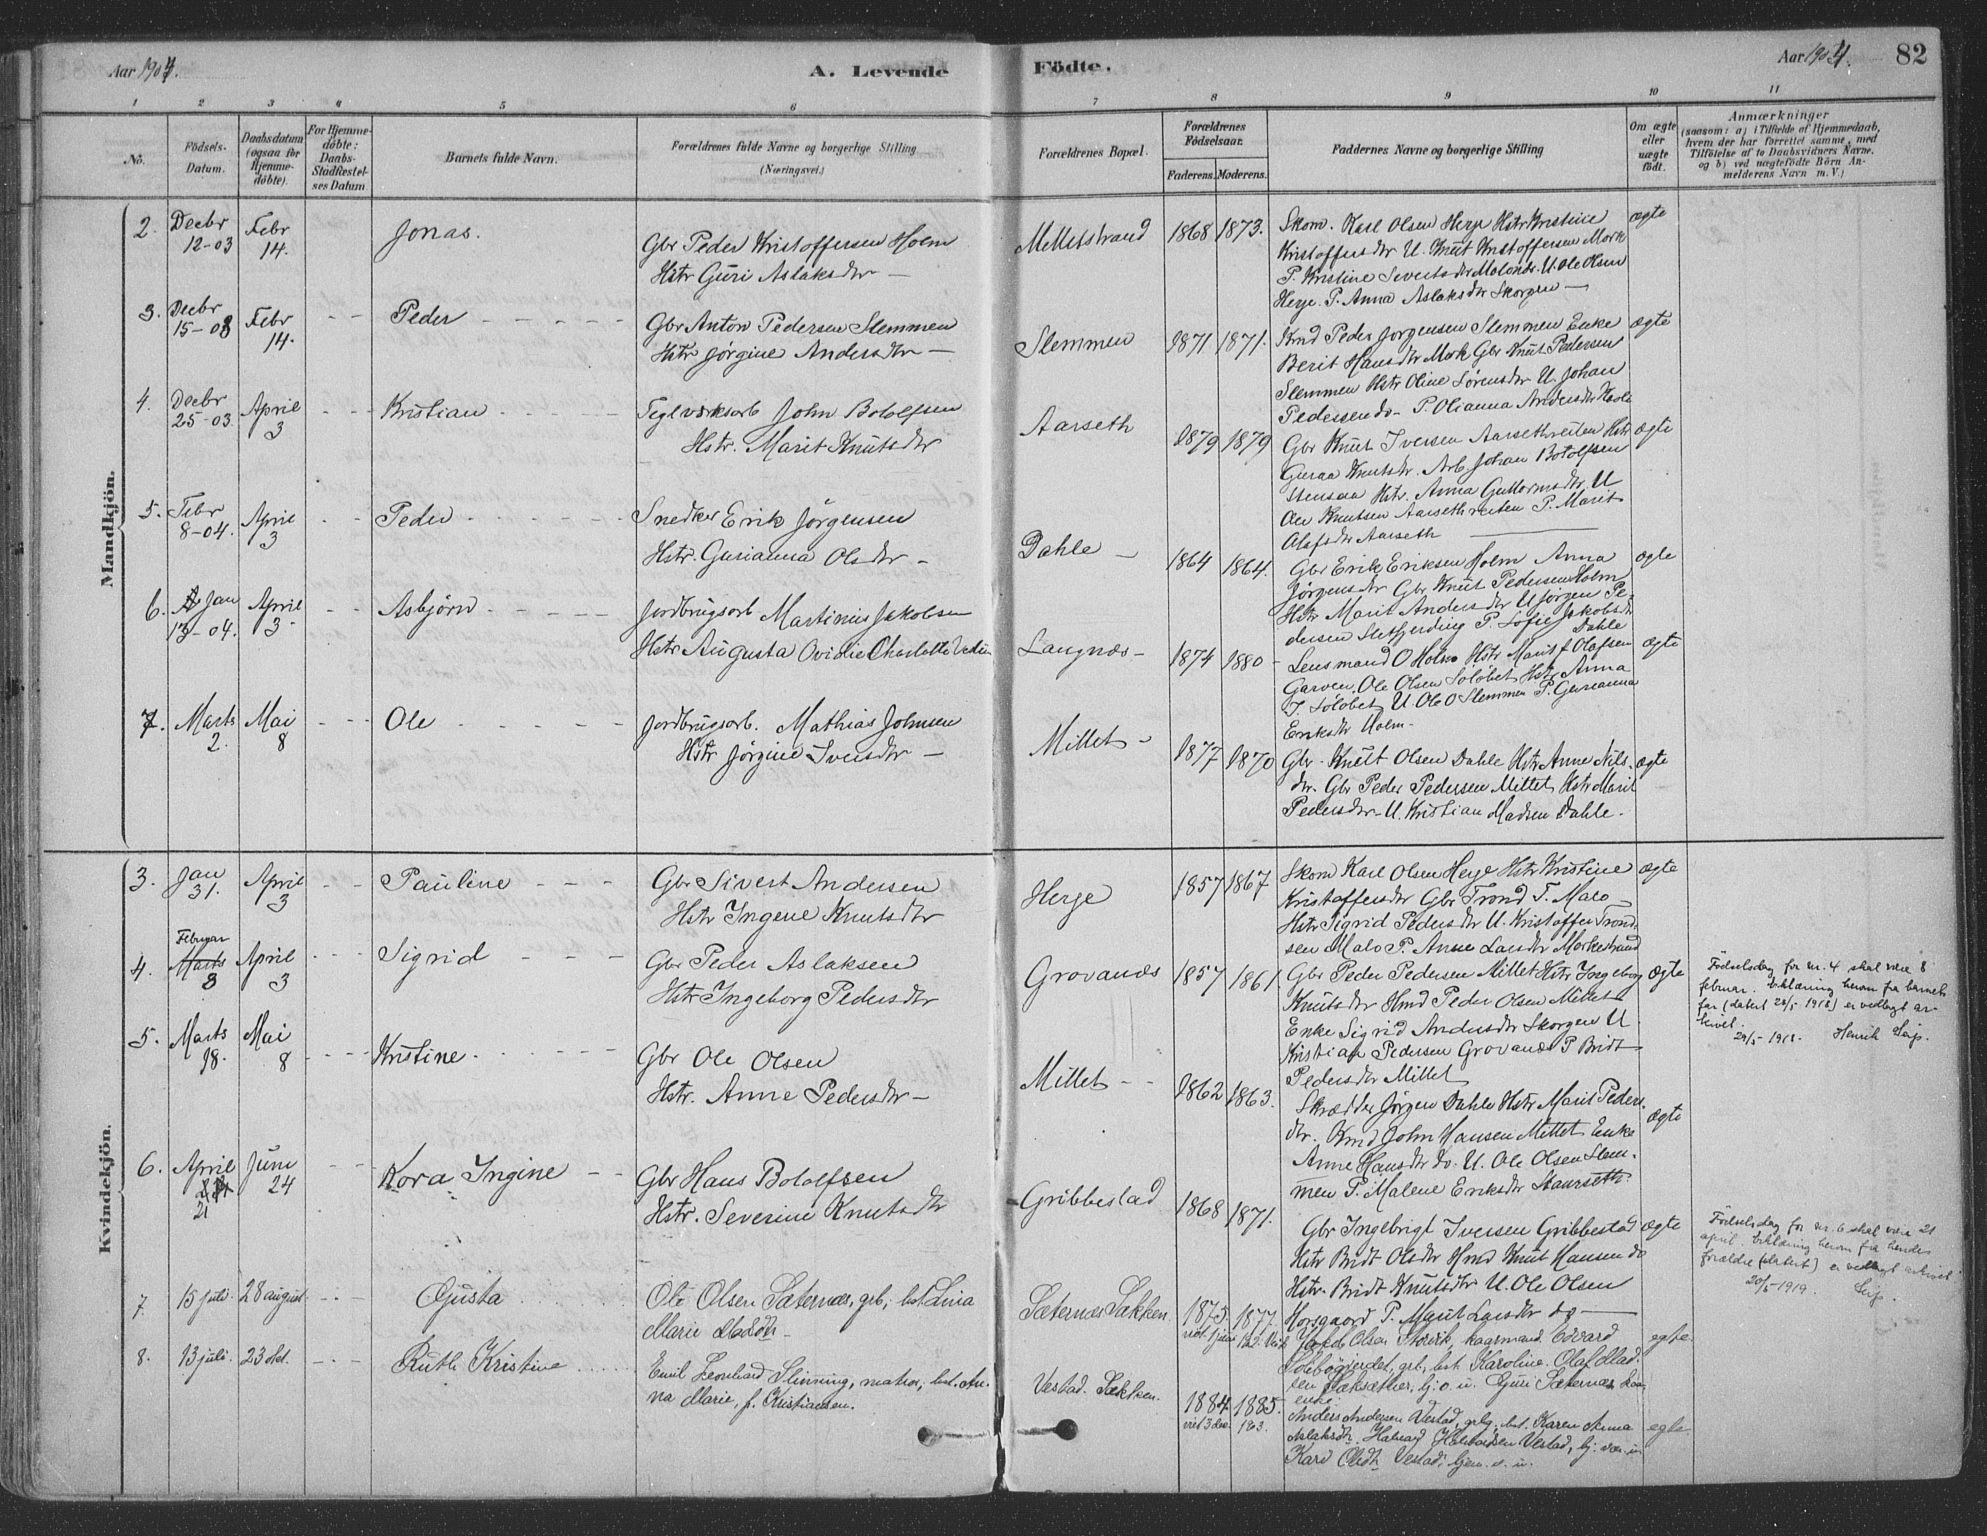 Aar 1904.
A. Levende
Födte.
Aar 1904.
82
1 2 3 4 5 6 7 8 9 10 11
No.
Födsels-
Datum.
Daabsdatum
(ogsaa for
Hjemme-
döbte).
For Hjemme-
döbte:
Daabs-
Stadfæstel-
ses Datum
Barnets fulde Navn.
Forældrenes fulde Navne og borgerlige Stilling
(Næringsvei.)
Forældrenes Bopæl.
Forældrenes
Födselsaar.
Faderens. Moderens.
Faddernes Navne og borgerlige Stilling
Om ægte
eller
uægte
födt.
Anmærkninger
(saasom: a) i Tilfælde af Hjemmedaab,
hvem der har forrettet samme, med
Tilföielse af to Daabsvidners Navne.
og b) ved uægtefödte Börn An-
melderens Navn m. V.)
Mandkjön.
2. Decbr 12-03
Febr 14.
Jonas.
Gbr Peder Kristoffersen Holm
Hstr Guri Aslaksdtr —
Mittetstrand
1868 1873.
Skom. Karl Olsen Herje Hstr Kristine
Kristoffersdtr U. Knut Kristoffersen Mork
P. Kristine Sivertsdtr U. Ole Olsen
Herje. P. Anna Aslaksdtr Skorgen —
ægte
3. Decbr 15-03
Febr 14.
Peder
Gbr Anton Pedersen Slemmen
Hstr Jørgine Andersdtr —
Slemmen
1871 1871.
Kmd Peder Jørgensen Slemmen Enke
Berit Hansdtr Mork Gbr Knut Pedersen
Slemmen Hstr Oline Sørensdtr U. Johan
Pedersen do - P. Olianna Andersdtr
ægte
4. Decbr 25-03
April 3
Kristian
Teglværksarb John Botolfsen
Hstr. Marit Knutsdtr
Aarseth
1879 1879
Gbr Knut Iversen Aarsethreiten Hstr
Guraa Knutsdtr. Arb Johan Botolfsen
Stensaa Hstr. Anna Guttormsdtr U
Ole Knutsen Aarsethreiten P. Marit
Olafsdtr Aarseth
ægte
5. Febr 8-04.
April 3
Peder
Snedker Erik Jörgensen
Hstr. Gurianna Olsdtr -
Dahle —
1864 1864.
Gbr Erik Eriksen Holm Anna
Jørgensdtr Gbr Knut Pedersen Holm
Hstr Marit Andersdtr U Jörgen Pe-
dersen P. Sofie Jakobsdtr
Dahle
ægte
6. Jan 13-04.
April 3
Asbjörn
Jordbrugsarb Martinus Jakobsen
Hstr Augusta Ovidie Charlotte
Langnæs -
1874 1880 -
Lensmand O Holm Hstr Marit J Olafsen
Garven. Ole Olsen Söløbet Hstr Anna
J. Söløbet U. Ole O Slemmen P. Gurianna
Eriksdtr Holm.
ægte
7. Marts 2.
Mai 8
Ole
Jordbrugsarb. Mathias Johnsen
Hstr Jörgine Iversdtr —
Mittet -
1877 1870
Gbr. Knut Olsen Dahle Hstr Anne Nils-
dtr. Gbr Peder Pedersen Mittet Hstr Marit
Pedersdtr - U. Kristian Madsen Dahle.
ægte
Kvindekjön.
3. Jan 31.
April 3
Pauline
Gbr Sivert Andersen
Hstr Ingene Knutsdtr
Herje
1857 1867
Skom Karl Olsen Herje Hstr Kristine
Kristoffersdtr Gbr Trond T. Malo
Hstr Sigrid Pedersdtr U. Kristoffer Trond-
sen Malo P. Anne Larsdtr Morkestrand
ægte
4. Februar
Marts 8
April 3
Sigrid
Gbr Peder Aslaksen
Hstr Ingeborg Pedersdtr
Grovanæs
1857 1861.
Gbr Peder Pedersen Mittet Hstr Ingeborg
Knutsdtr Hmd Peder Olsen Mittet
Enke Sigrid Andersdtr Skorgen U.
Kristian Pedersen Grovanæs P Bridt
Pedersdtr Mittet
ægte
Födselsdag for nr. 4 skal være 8
februar. Erklæring herom fra barnets
far (datert 28/5 1918) er vedlagt ar-
kivet.
29/5 1918. Henrik Seip.
5. Marts 18.
Mai 8
Kristine
Gbr Ole Olsen
Hstr. Anne Pedersdtr —
Mittet - -
1862 1863.
Skrædder Jörgen Dahle Hstr Marit Peders-
dtr. Kmd John Hansen Mittet Enke
Anne Hansdtr do. U. Ole Olsen Slem-
men P. Malene Eriksdtr Staurseth
ægte
6. April 21
Juni 24
Kora Ingine
Gbr Hans Botolfsen
Hstr. Severine Knutsdtr
Gribbestad
1868 1871.
Gbr Ingebrigt Iversen Gribbestad
Hstr Bridt Olsdtr Hmd Knut Hansen do
Hstr. Bridt Knutsdtr U. Ole Olsen
Horsgaard P. Marit Larsdtr do —
ægte
Födselsdag for nr. 6 skal være 21
april. Erklæring herom fra hendes
forældre (datert) er vedlagt arkivet
20/5-1919. Seip.
7 15 juli.
28 august.
Gjusta
Ole Olsen Sæternæs, grb, hst. Lina
Marie Madsdtr.
Sæternæs Sækken.
1875 1877.
Olsen Storvik, kaarmand Edvard
Solebøgjerdet, grb, hst. Karoline. Olaf Mad-
sen Sæksæther, Guri Sæternæs, kaar-
enke.
egte.
8. 13 juli.
23 okt.
Ruth Kristine
Emil Leonhard Slinning, matros, hst. An-
na Marie, f. Kristiansen.
Vestad. Sækken.
1884. 1885.
Anders Andersen Vestad, grbg, hst. Karen Anna
Aslaksdtr. Halvard Vestad,
Kari Olsdtr Vestad,
egte